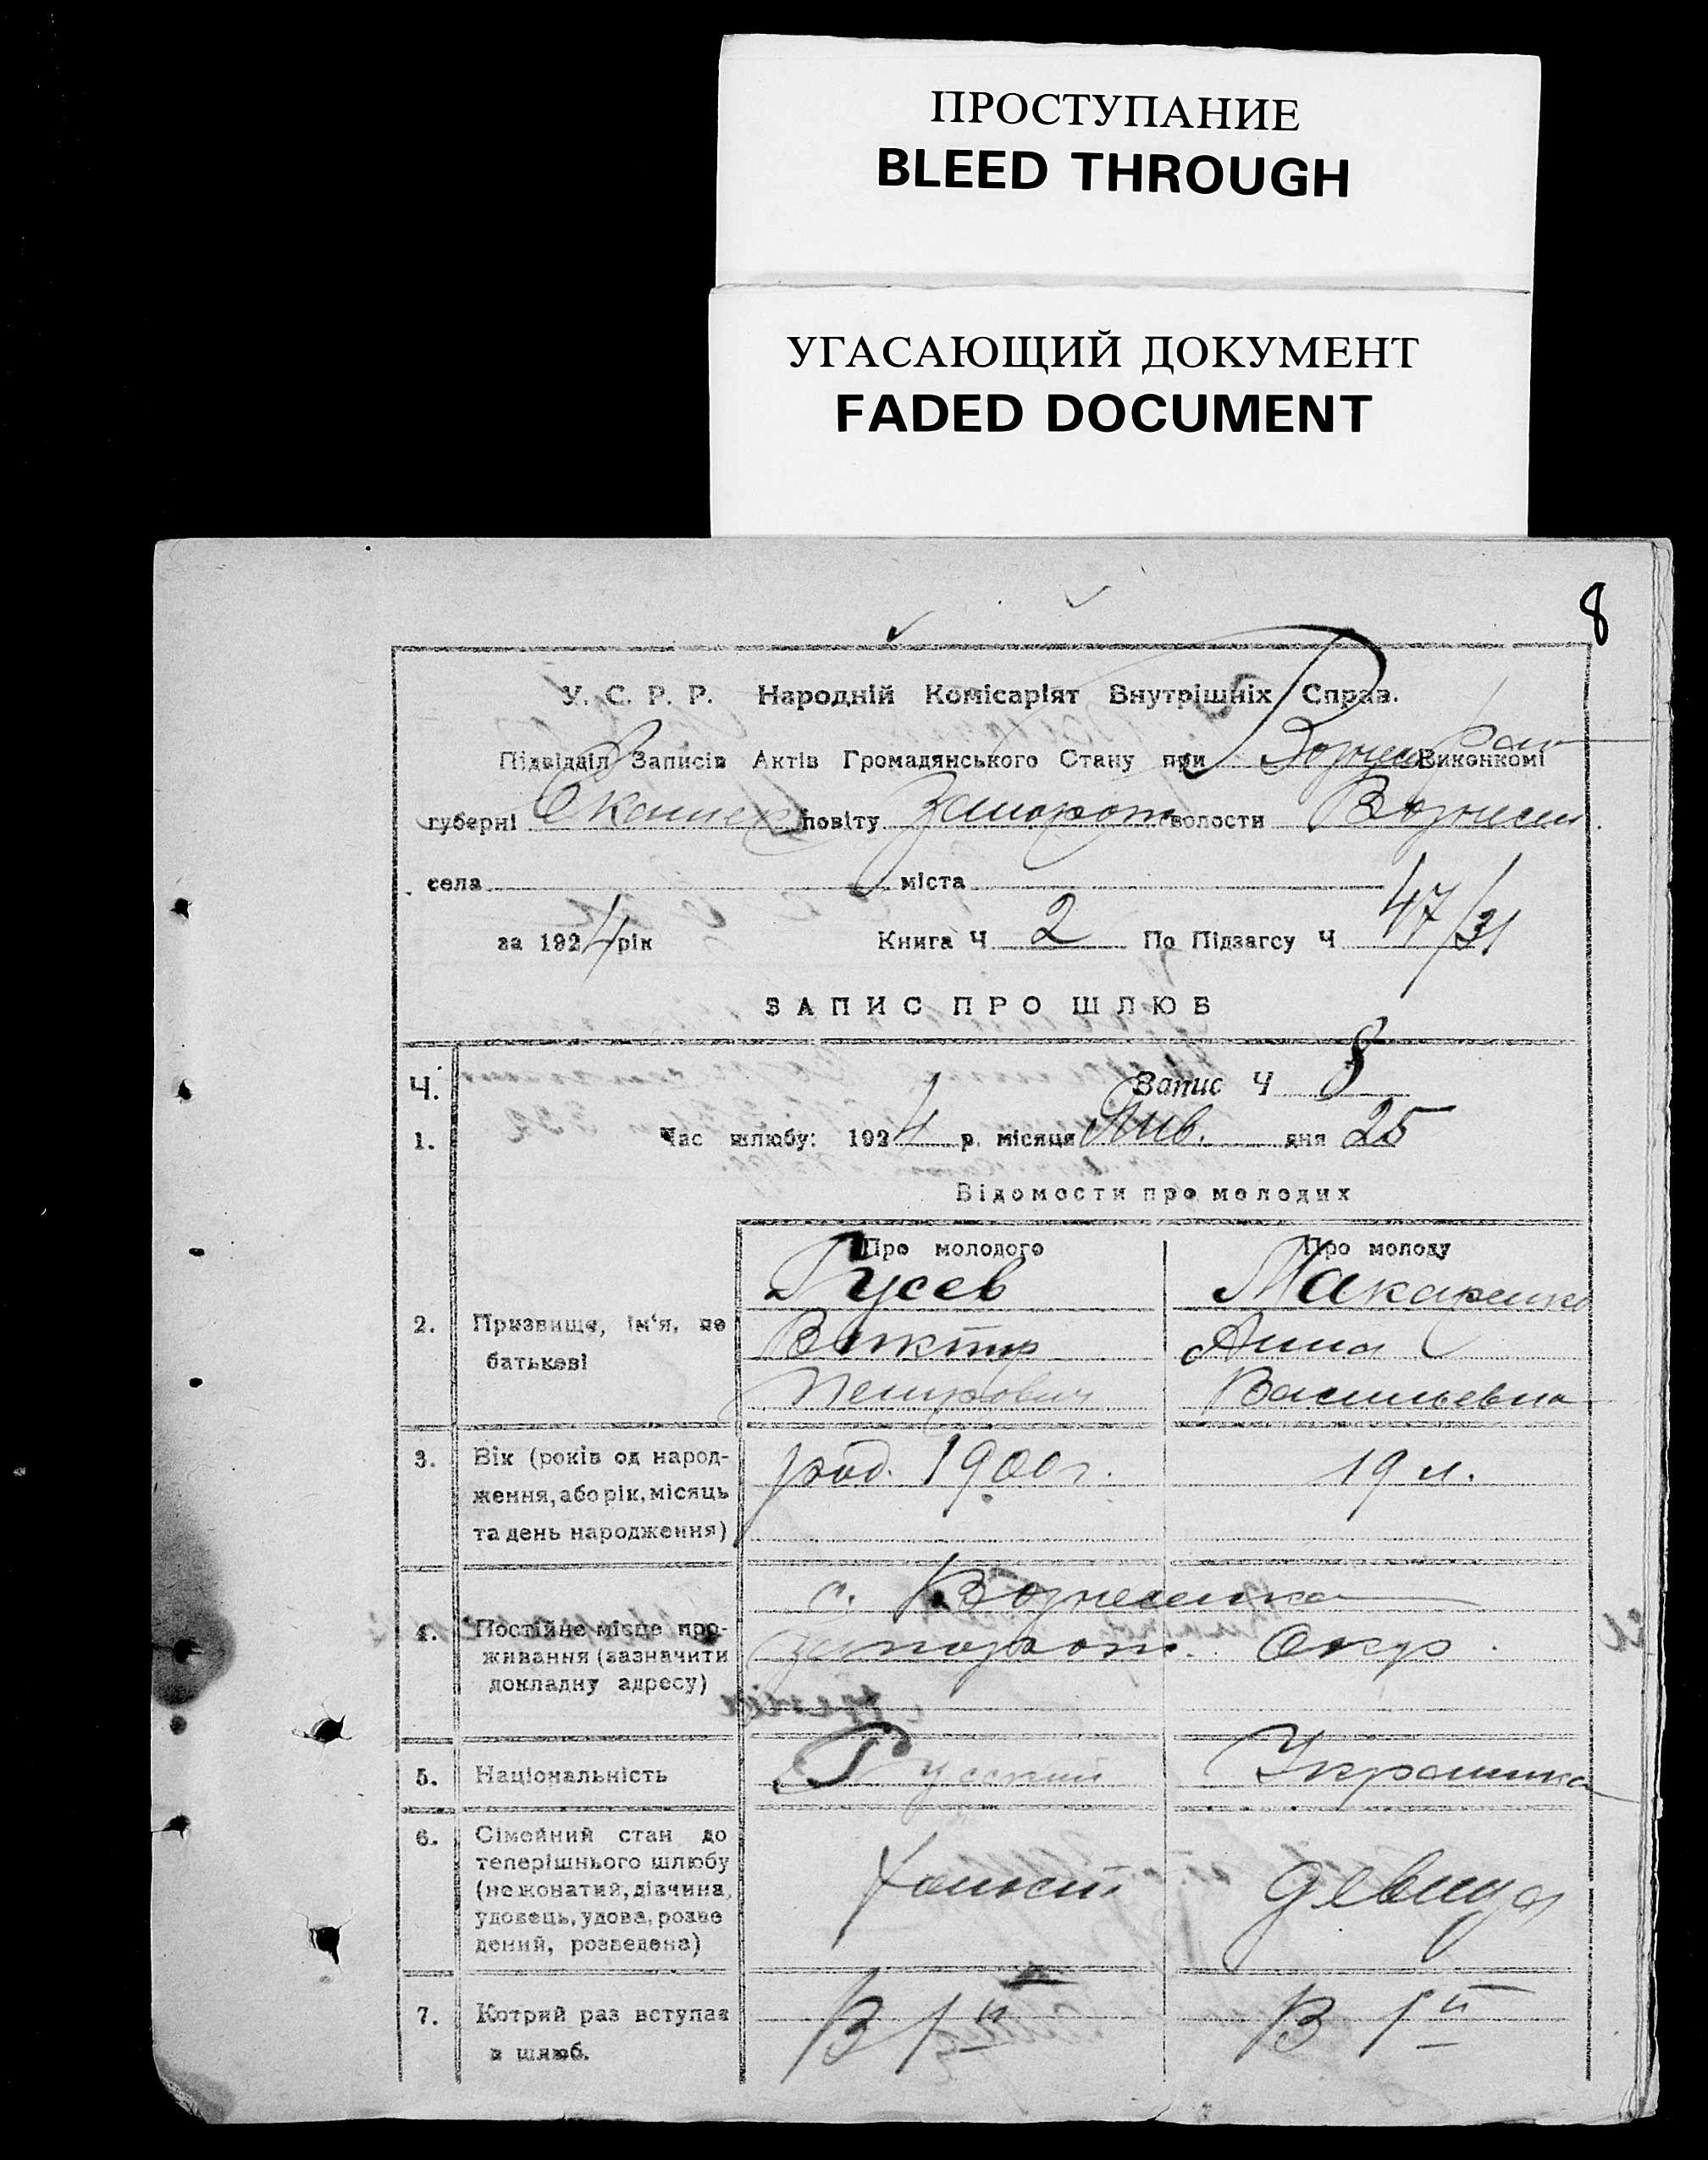 ПРОСТУПАНИЕ
BLEED THROUGH
УГАСАЮЩИЙ ДОКУМЕНТ
FADED DOCUMENT
8
У. С. Р. Р. Народній Комісаріят Внутрішніх Справ.
Підвідділ Записів Актів Громадянського Стану при Виконкомі
губерні повіту Запорож волости Вознесен.
села міста
за 1924 рік Книга Ч 2 По Підзагсу Ч 47/31
ЗАПИС ПРО ШЛЮБ
Ч. Запис Ч 8
1. Час шлюбу: 1924 р. місяця Янв. дня 25
Відомости про молодих
Про молодого Про молоду
Гусев Макаренко
2. Призвище, ім'я, по Виктор Анна
батькові Петрович Васильевна
3. Вік (років од народ- род. 1900 г. 19 л.
ження, або рік, місяць
та день народження)
с. Вознесенка
4. Постійне місце про- Запорож. Окр.
живання (зазначити
докладну адресу)
5. Національність Русский Украинка
6. Сімейний стан до
теперішнього шлюбу
(не жонатий, дівчина, Холост девица
удовець, удова, розве
дений, розведена)
7. Котрий раз вступає В 1й В 1й
в шлюб.